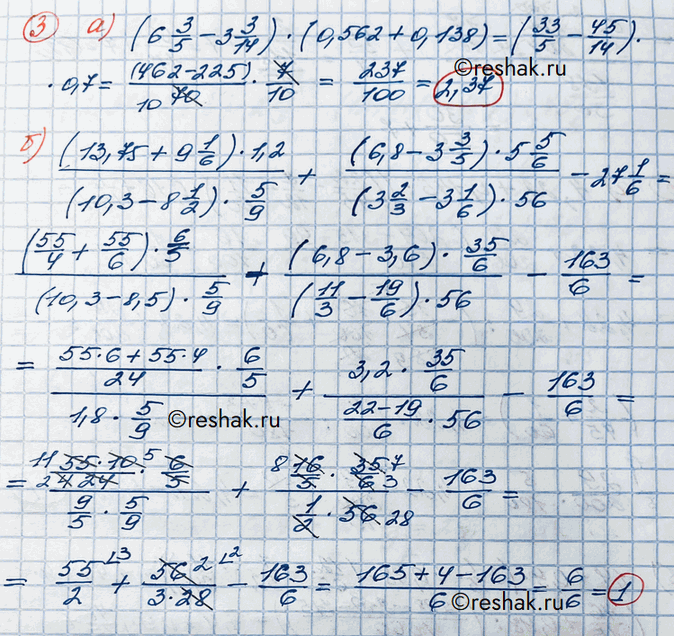 ③ а) (6 3/5 − 3 3/14) · (0,562 + 0,138) = (33/5 − 45/14) ·
· 0,7 = (462−225)/70 · 7/10 = 237/100 = 2,37
10
©reshak.ru
б) ((13,75 + 9 1/6) · 1,2)/((10,3 − 8 1/2) · 5/9) + ((6,8 − 3 3/5) · 5 5/6)/((3 2/3 − 3 1/6) · 56) − 27 1/6 =
((55/4 + 55/6) · 6/5)/((10,3 − 8,5) · 5/9) + ((6,8 − 3,6) · 35/6)/((11/3 − 19/6) · 56) − 163/6 =
= ((55·6 + 55·4)/24 · 6/5)/(1,8 · 5/9) + (3,2 · 35/6)/((22−19)/6 · 56) − 163/6 =
©reshak.ru
= 11 55 · 10 5 · 6/5 / 2 4 24 / (9/5 · 5/9) + (8 16/5 · 35 7/6 3)/(1/2 · 56 28) − 163/6 =
= 55/2 ⌞3 + 56 2/(3·28) ⌞2 − 163/6 = (165 + 4 − 163)/6 = 6/6 = 1
©reshak.ru